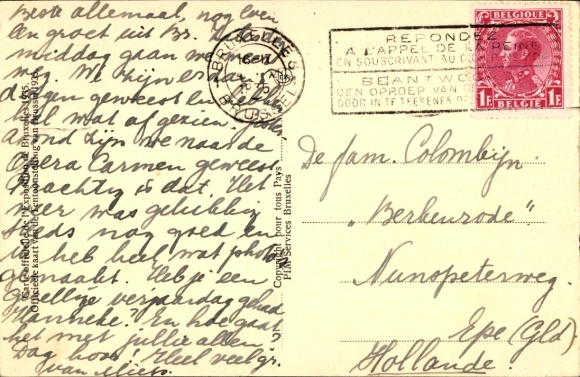 Beste allemaal, nog even
een groet uit Br. Van-
middag gaan we
nog. We zijn
dagen geweest en
heel wat af gezien.
avond zijn we naar de
Opera Carmen geweest
Prachtig is dat. Het
weer was gelukkig
steeds nog goed en
ik heb heel wat photo's
gemaakt. Heb je een
gezellige verjaardag gehad
Hanneke? En hoe gaat
het met jullie allen?
Dag hoor! Heel veel gr.
van Miep.
Officieele kaart van de Tentoonstelling van Brussel 1935
Copyright pour tous Pays
Services Bruxelles
BRUXELLES
BRUSSEL
REPONDEZ
A L'APPEL DE LA REINE
EN SOUSCRIVANT AU
BEANTWO
DEN OPROEP VAN
DOOR IN TE TEEKENEN OP
BELGIQUE
1F 1F
BELGIË
De fam. Colombijn
„Berkenrode"
Nunspeterweg.
Epe (Gld)
Hollande.